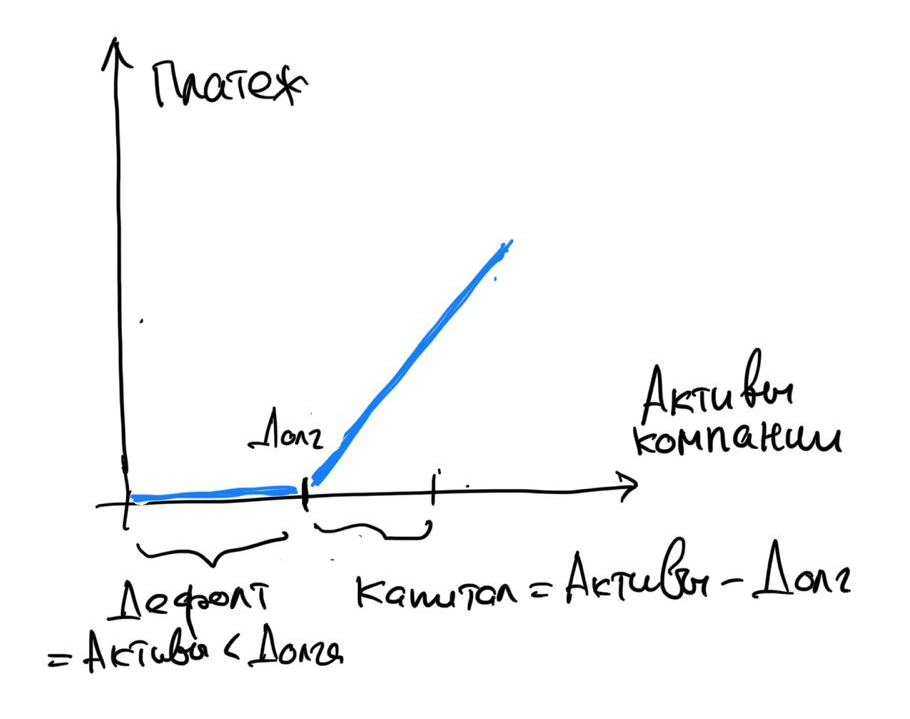 Платеж
Долг
Активы
компании
Дефолт
= Активы < Долга
Капитал = Активы - Долг